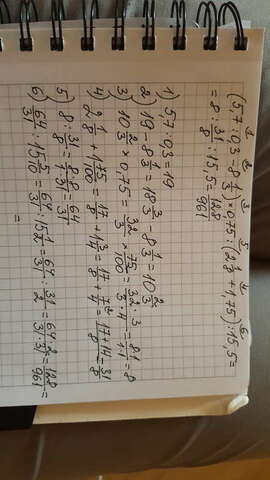 1 2 3 5 4 6
(5,7 : 0,3 - 8 1/3) · 0,75 : (2 1/8 + 1,75) : 15,5 =
= 8 : 31/8 : 15,5 = 128/961
1) 5,7 : 0,3 = 19
2) 19 - 8 1/3 = 18 3/3 - 8 1/3 = 10 2/3
3) 10 2/3 × 0,75 = 32/3 × 75/100 = (32 · 3)/(3 · 4) = = 8
4) 2 1/8 + 1 75/100 = 17/8 + 1 3/4 = 17/8 + 7/4 = (17+14)/8 = 31/8
5) 8 : 31/8 = (8 · 8)/(1 · 31) = 64/31
6) 64/31 : 15 5/10 = 64/31 : 15 1/2 = 64/31 : 31/2 = (64 · 2)/(31 · 31) = 128/961 =
=